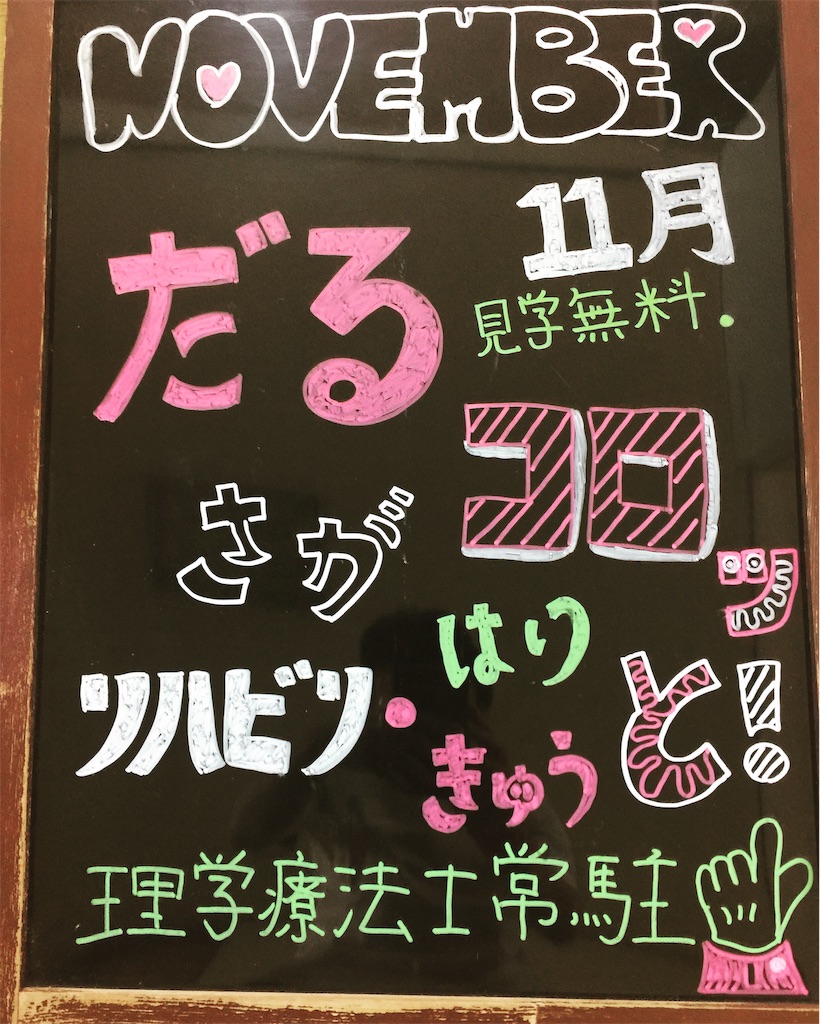 NOVEMBER
11月
見学無料.
だる
コロッ
と!
さが
リハビリ・
はり
きゅう
理学療法士常駐